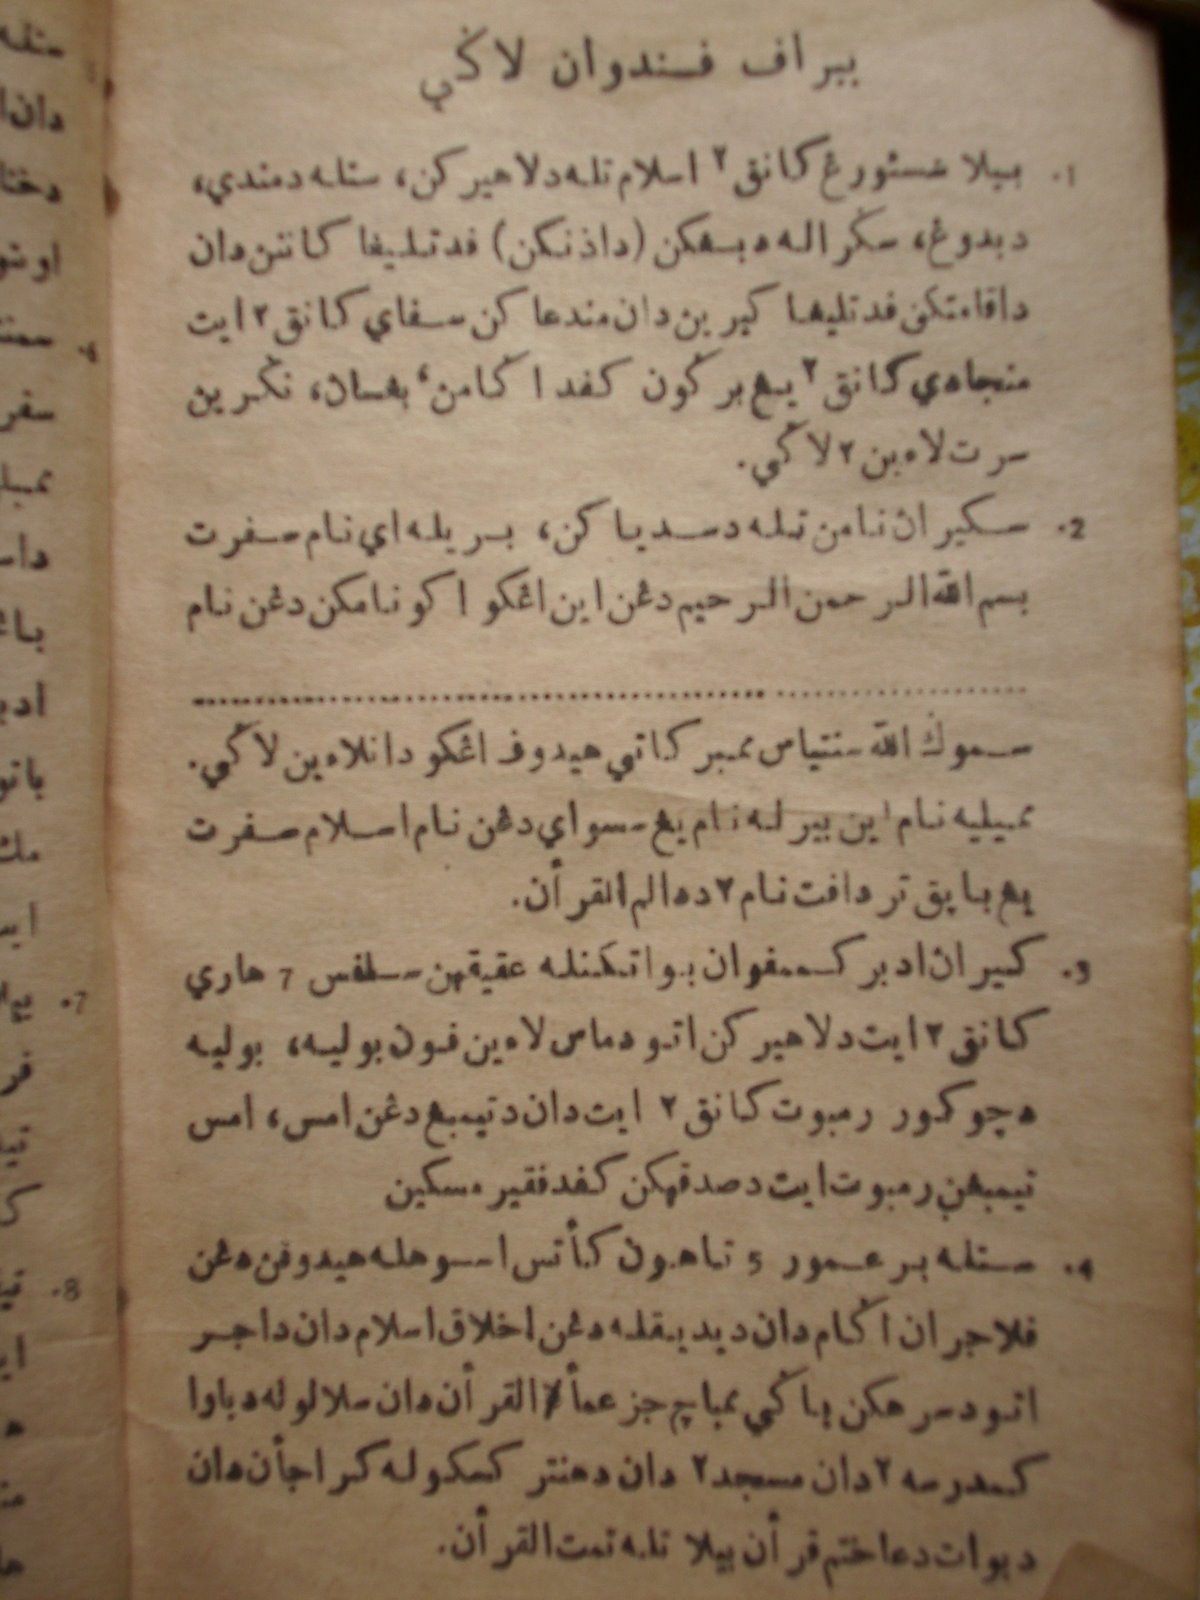 ببراف فندوان لاݢي
1. بيلا سستورغ كانق٢ اسلام تله دلاهيركن، ستله دمندي،
دبدوغ، سݢراله دبهكن (داذنكن) فد تليفا كانن دان
داقامتكن فد تليها كيرين دان مندعاكن سفاي كانق٢ ايت
منجادي كانق٢ يڠ برݢون كفد اݢامن، بڠسان، نݢرين
سرت لاءين٢ لاݢي.
2. سكيران نامن تله دسدياكن، بريله اي نام سفرت
بسم الله الرحمن الرحيم دڠن اين اڠكو اكو نامكن دڠن نام
................................................
سموݢ الله سنتياس ممبركاتي هيدوف اڠكو دان لاءين لاݢي.
مميليه نام اين بيرله نام يڠ سسواي دڠن نام اسلام سفرت
يڠ بايق تردافت نام٢ ددالم القرأن.
3. كيران اد بركممفوان بواتكنله عقيقهن سلفس 7 هاري
كانق٢ ايت دلاهيركن اتو دماس لاءين فون بوليه، بوليه
دچوكور رمبوت كانق٢ ايت دان دتيمبڠ دڠن امس، امس
تيمبڠن رمبوت ايت دصدقهكن كفد فقير مسكين
4. ستله برعمور 5 تاهون كأتس اسوهله هيدوفن دڠن
فلاجران اݢام دان ديديقله دڠن اخلاق اسلام دان داجر
اتو دسرهكن باݢي ممباچ جزء عم القرأن دان سلالوله دباوا
كمدرسه٢ دان مسجد٢ دان دهنتر كسكوله كراجأن دان
دبوات دعا ختم قرأن بيلا تله تمت القرأن.
4.
7.
8.